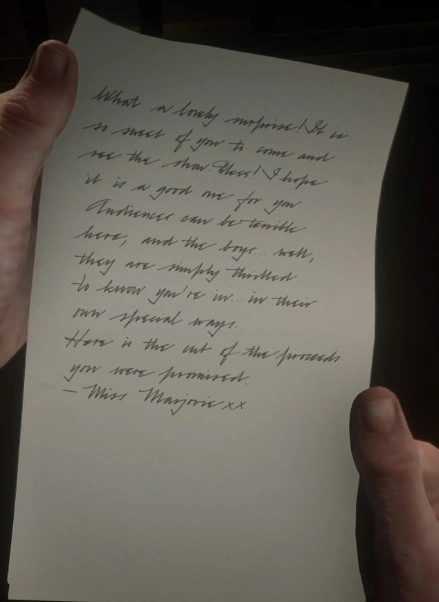 What a lovely surprise! It is
so sweet of you to come and
see the show. Bless! I hope
it is a good one for you.
Audiences can be terrible
here, and the boys... well,
they are simply thrilled
to know you're in... in their
own special ways.
Here is the cut of the proceeds
you were promised.
– Miss Marjorie xx